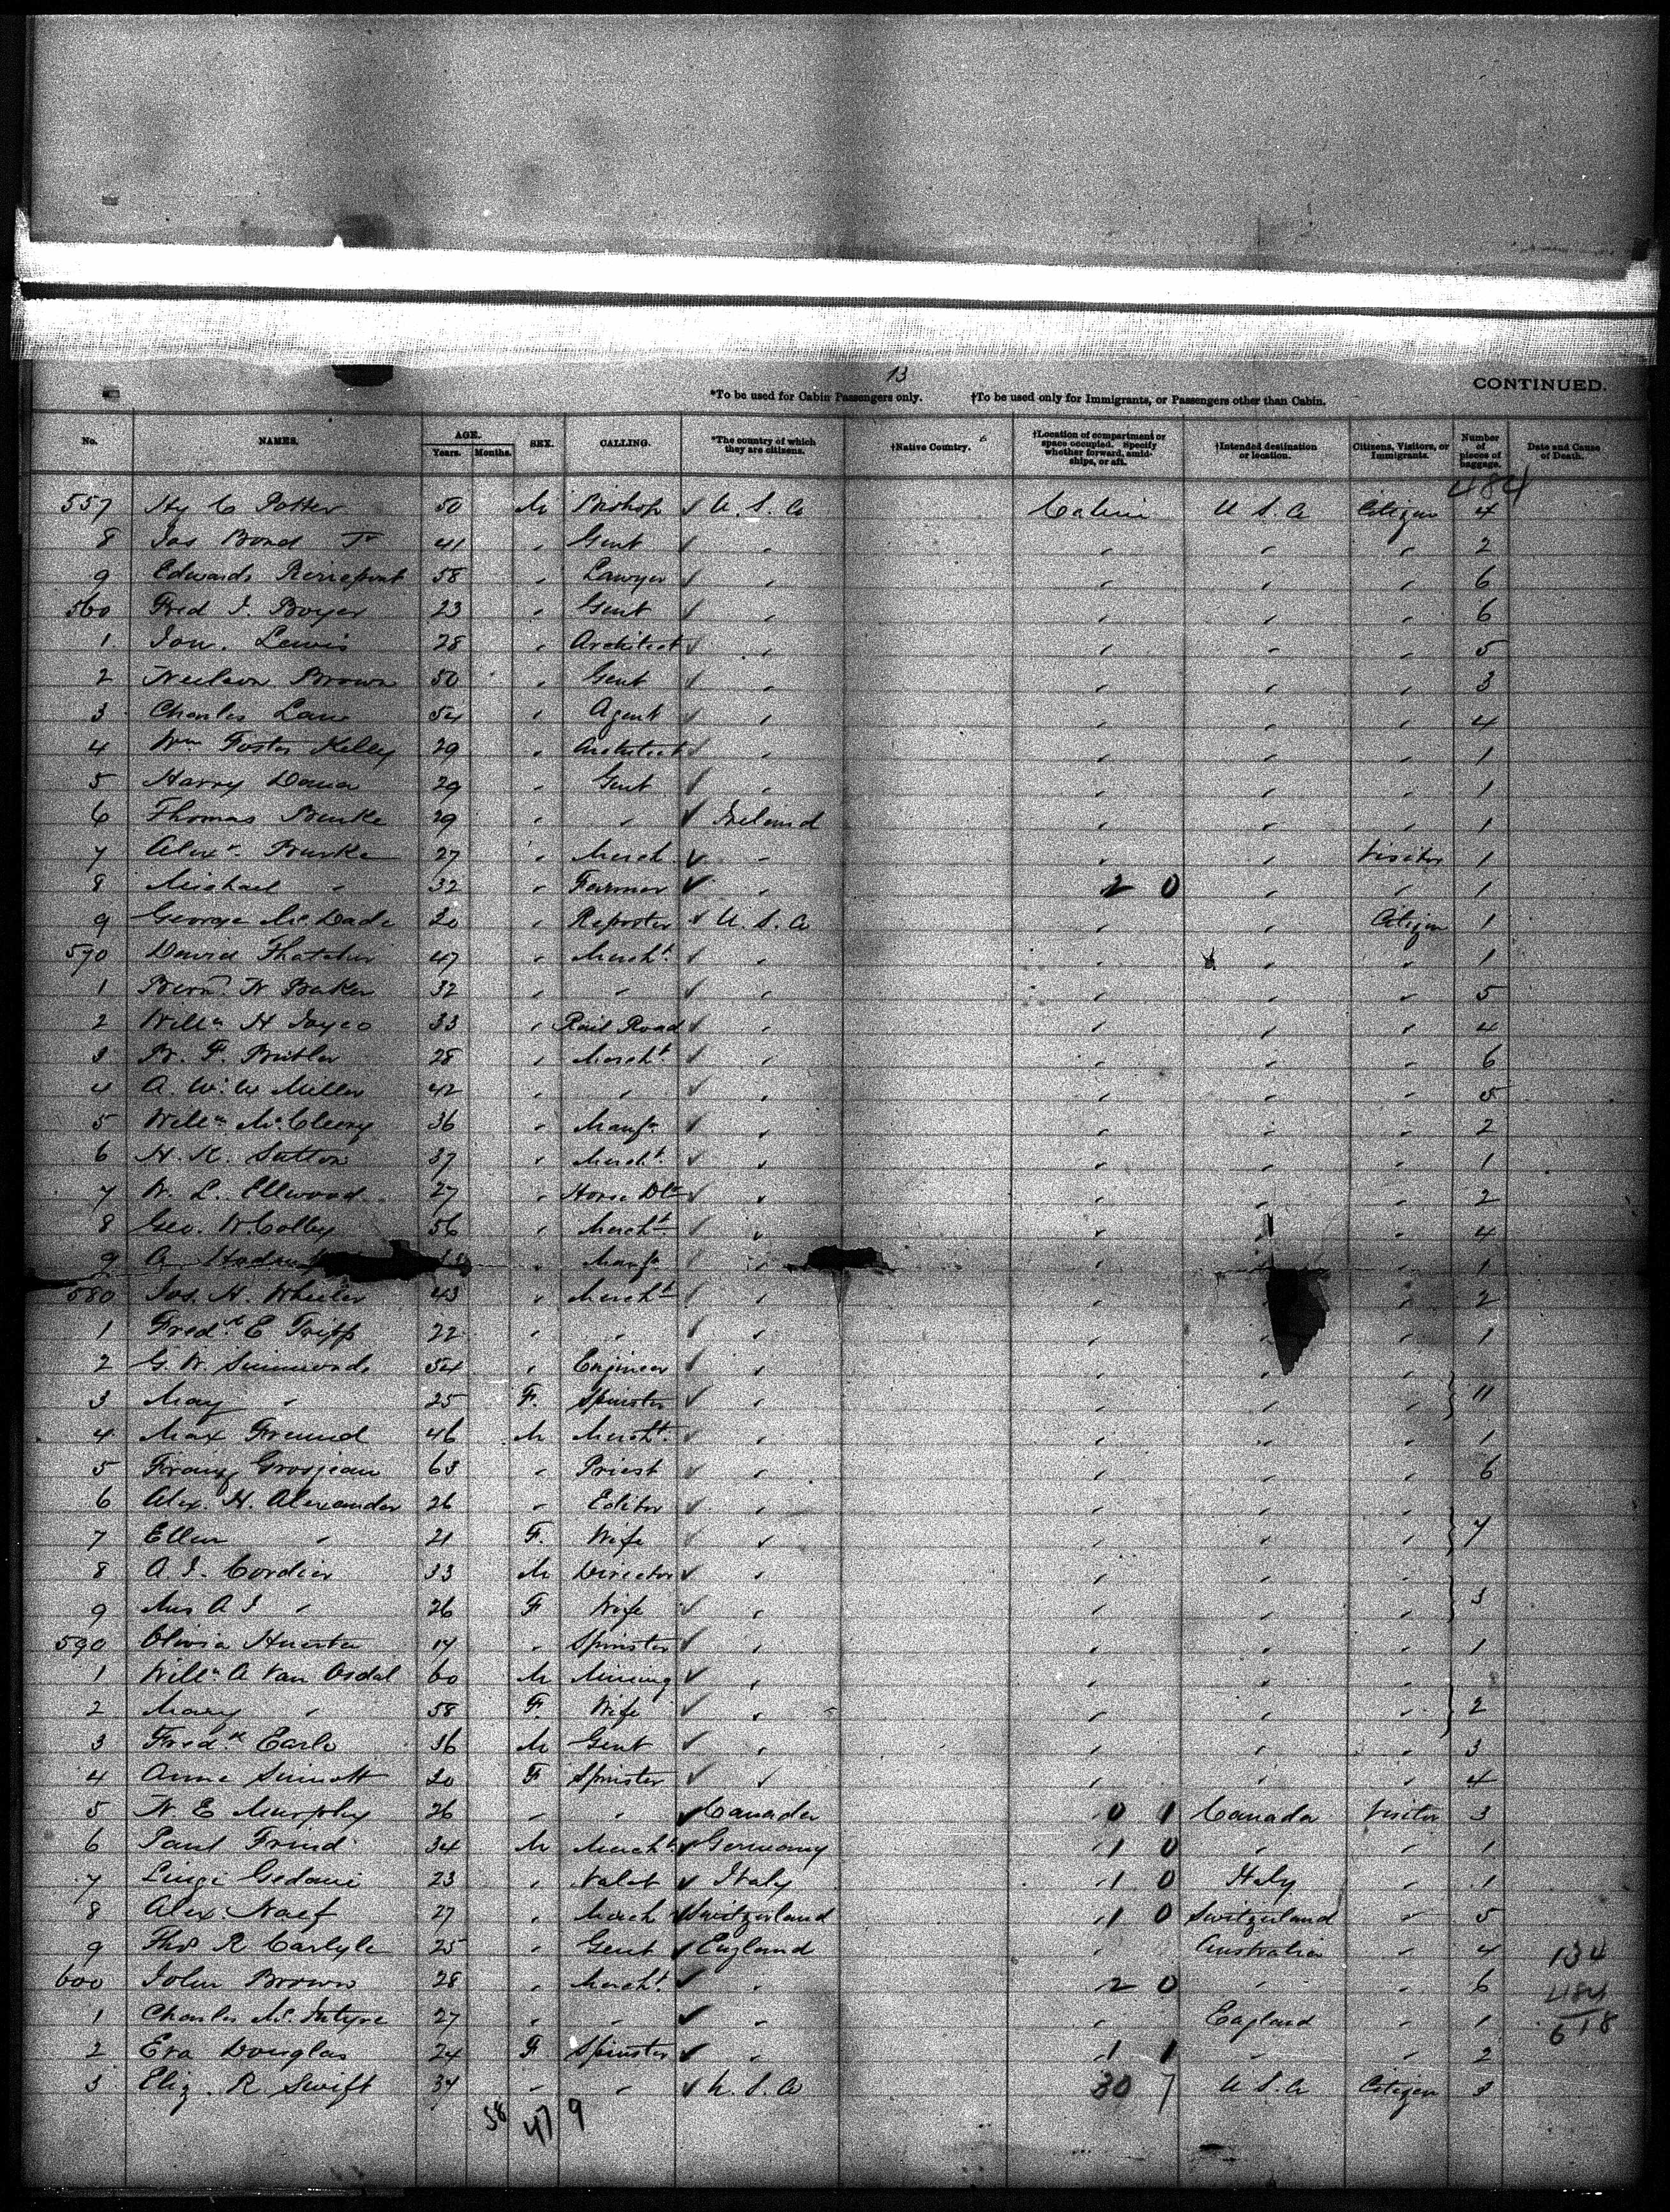 13
CONTINUED.
*To be used for Cabin Passengers only. †To be used only for Immigrants, or Passengers other than Cabin.
No. NAMES. AGE. Years. Months. SEX. CALLING. *The country of which they are citizens. †Native Country. †Location of compartment or space occupied. Specify whether forward, amidships, or aft. †Intended destination or location. Citizens, Visitors, or Immigrants. Number of pieces of baggage. Date and Cause of Death.
484
557 Hy C Potter 50 M Bishop ✓ U.S.A Cabin U S.A Citizen 4
8 Jas Bond Jr 41 " Gent ✓ " " " " 2
9 Edwards Pierrepont 58 " Lawyer ✓ " " " " 6
560 Fred J. Boyer 23 " Gent ✓ " " " " 6
1 Jon. Lewis 28 " Architect ✓ " " " " 5
2 Neilson Brown 50 " Gent ✓ " " " " 3
3 Charles Lane 54 " Agent ✓ " " " " 4
4 Wm Foster Kelley 29 " Architect ✓ " " " " 1
5 Harry Dana 29 " Gent ✓ " " " " 1
6 Thomas Burke 29 " " ✓ Ireland " " " 1
7 Alexr. Burke 27 " Merch ✓ " " " Visitor 1
8 Michael " 32 " Farmer ✓ " 2 0 " " 1
9 George McDade 20 " Reporter ✓ U.S.A " " Citizen 1
570 David Thatcher 47 " Mercht. ✓ " " " " 1
1 Bern. N Baker 32 " " ✓ " " " " 5
2 Willm H Joyce 33 " Rail Road ✓ " " " " 4
3 B. F. Butler 28 " Mercht ✓ " " " " 6
4 A. W. W Miller 42 " " ✓ " " " " 5
5 Willm McCleery 36 " Manfr ✓ " " " " 2
6 H. K. Sutton 37 " Mercht. ✓ " " " " 1
7 W. L. Ellwood 27 " Horse Dlr ✓ " " " " 2
8 Geo. W. Colby 56 " Mercht. ✓ " " " " 4
9 A " Manfr ✓ " " " " 1
580 Jos. H. Wheeler 43 " Mercht ✓ " " " " 2
1 Fredk E Tripp 22 " " ✓ " " " " 1
2 G. W. Simmonds 54 " Engineer ✓ " " " "
3 May " 25 F. Spinster ✓ " " " " } 11
4 Max Freund 46 M Mercht. ✓ " " " " 1
5 Franz Grosjean 63 " Priest ✓ " " " " 6
6 Alex. H. Alexander 26 " Editor ✓ " " " "
7 Ellen " 21 F. Wife ✓ " " " " } 7
8 A. J. Cordier 33 M Director ✓ " " " "
9 Mrs A J " 26 F Wife ✓ " " " " } 3
590 Olivia Huerta 17 " Spinster ✓ " " " " 1
1 Willm A Van Osdal 60 M Mining ✓ " " " "
2 Mary " 58 F. Wife ✓ " " " " } 2
3 Fredk Earle 36 M Gent ✓ " " " " 3
4 Anne Sinnott 20 F Spinster ✓ " " " " 4
5 N E Murphy 26 " " ✓ Canada 0 1 Canada Visitor 3
6 Paul Frind 34 M Mercht. ✓ Germany 1 0 " " 1
7 Luigi Gedoni 23 " Valet ✓ Italy 1 0 Italy " 1
8 Alex. Naef 27 " Merch ✓ Switzerland 1 0 Switzerland " 5
9 Thos R Carlyle 25 " Gent ✓ England " Australia " 4 134
600 John Brown 28 " Mercht. ✓ " 2 0 " " 6 484
1 Charles McIntyre 27 " " ✓ " " England " 1 618
2 Eva Douglas 24 F Spinster ✓ " 1 1 " " 2
3 Eliz. R Swift 34 " " ✓ U.S.A 30 7 U S.A Citizen 3
38 47 9